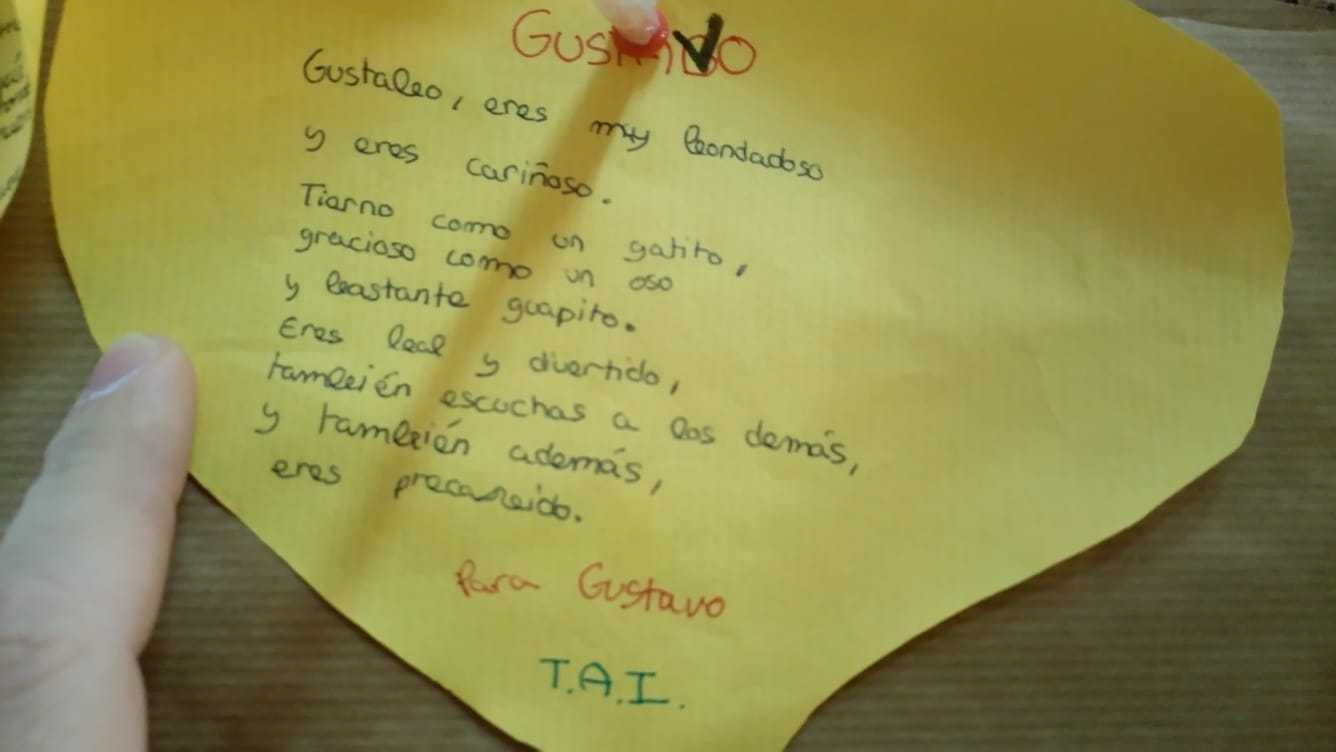 GUSTAVO
Gustabo, eres muy bondadoso
y eres cariñoso.
Tierno como un gatito,
gracioso como un oso
y bastante guapito.
Eres leal y divertido,
también escuchas a los demás,
y también además,
eres precabido.
Para Gustavo
T.A.I.